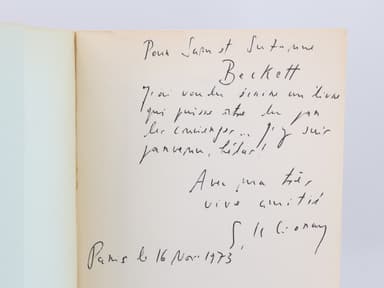 Pour Sam et Suzanne
Beckett
J'ai voulu écrire un livre
qui puisse être lu par
les concierges... J'y suis
parvenu, hélas!
Avec ma très
vive amitié
Paris le 16 Nov. 1973